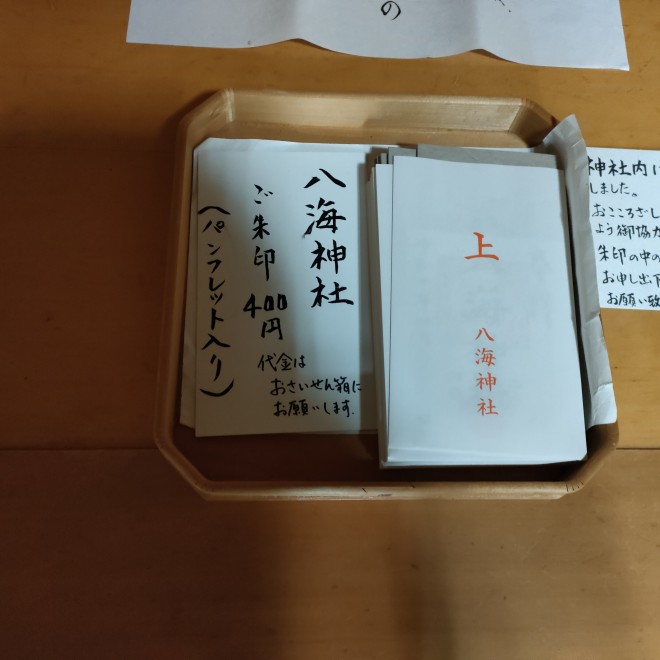 の
八海神社
ご朱印 400円
(パンフレット入り)
代金は
おさいせん箱に
お願いします.
上
八海神社
神社内に
しました。
おこころざし
よう御協力
朱印の中の
お申し出下
お願い致